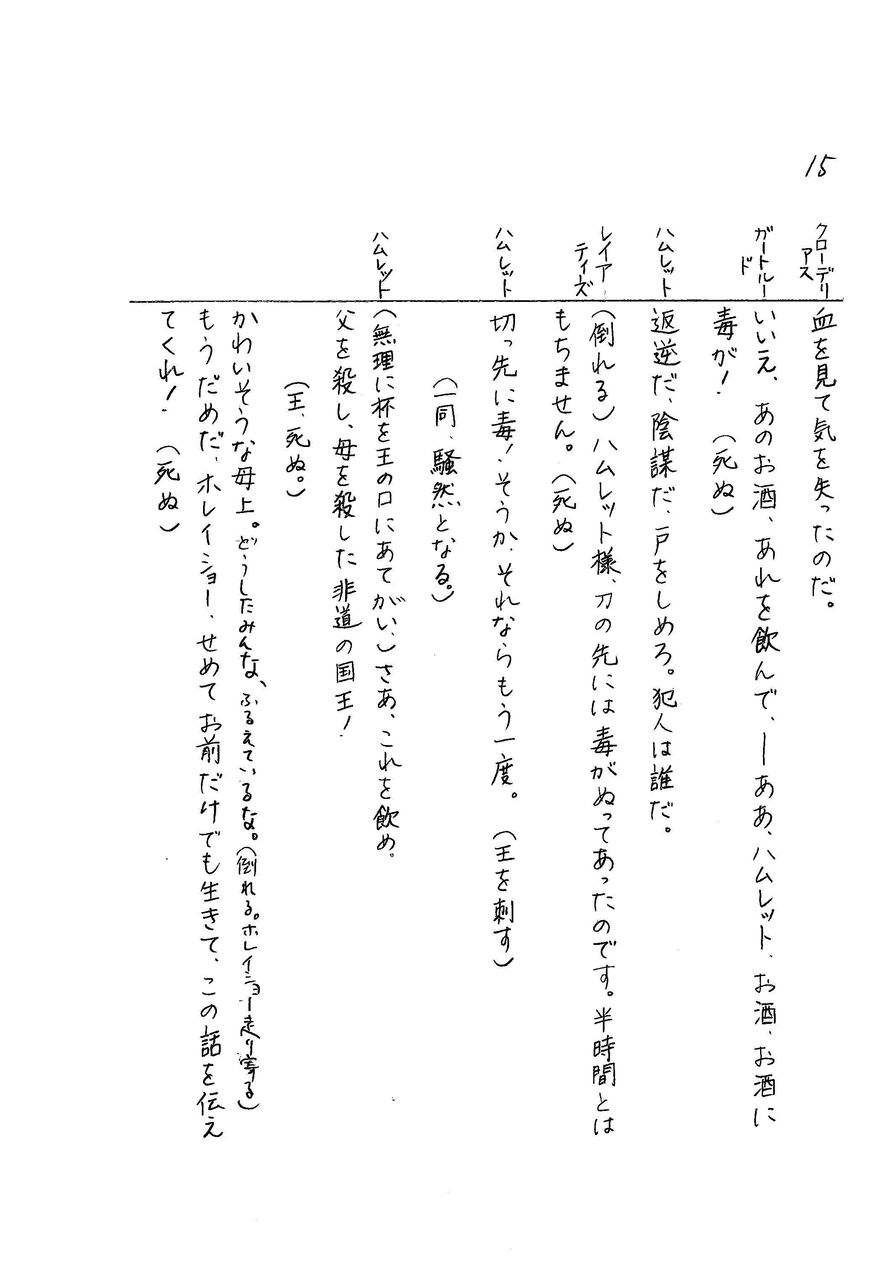 15
クローディアス 血を見て気を失ったのだ。
ガートルード いいえ、あのお酒、あれを飲んで、ーああ、ハムレット、お酒、お酒に
毒が! (死ぬ)
ハムレット 返逆だ、陰謀だ、戸をしめろ。犯人は誰だ。
レイアティーズ (倒れる)ハムレット様、刀の先には毒がぬってあったのです。半時間とは
もちません。(死ぬ)
ハムレット 切っ先に毒!そうか、それならもう一度。 (王を刺す)
(一同、騒然となる。)
ハムレット (無理に杯を王の口にあてがい、)さあ、これを飲め。
父を殺し、母を殺した非道の国王!
(王、死ぬ。)
かわいそうな母上。どうしたみんな、ふるえているな。(倒れる。ホレイショー走り寄る)
もうだめだ、ホレイショー、せめてお前だけでも生きて、この話を伝え
てくれ! (死ぬ)